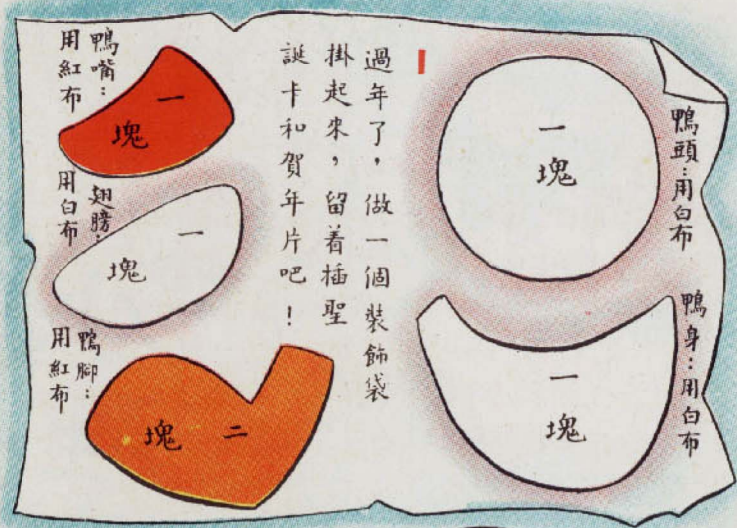 鴨頭：用白布
一塊
鴨身：用白布
一塊
1
過年了，做一個裝飾袋
掛起來，留着插聖
誕卡和賀年片吧！
鴨嘴：
用紅布
一塊
翅膀：
用白布
一塊
鴨腳：
用紅布
二塊